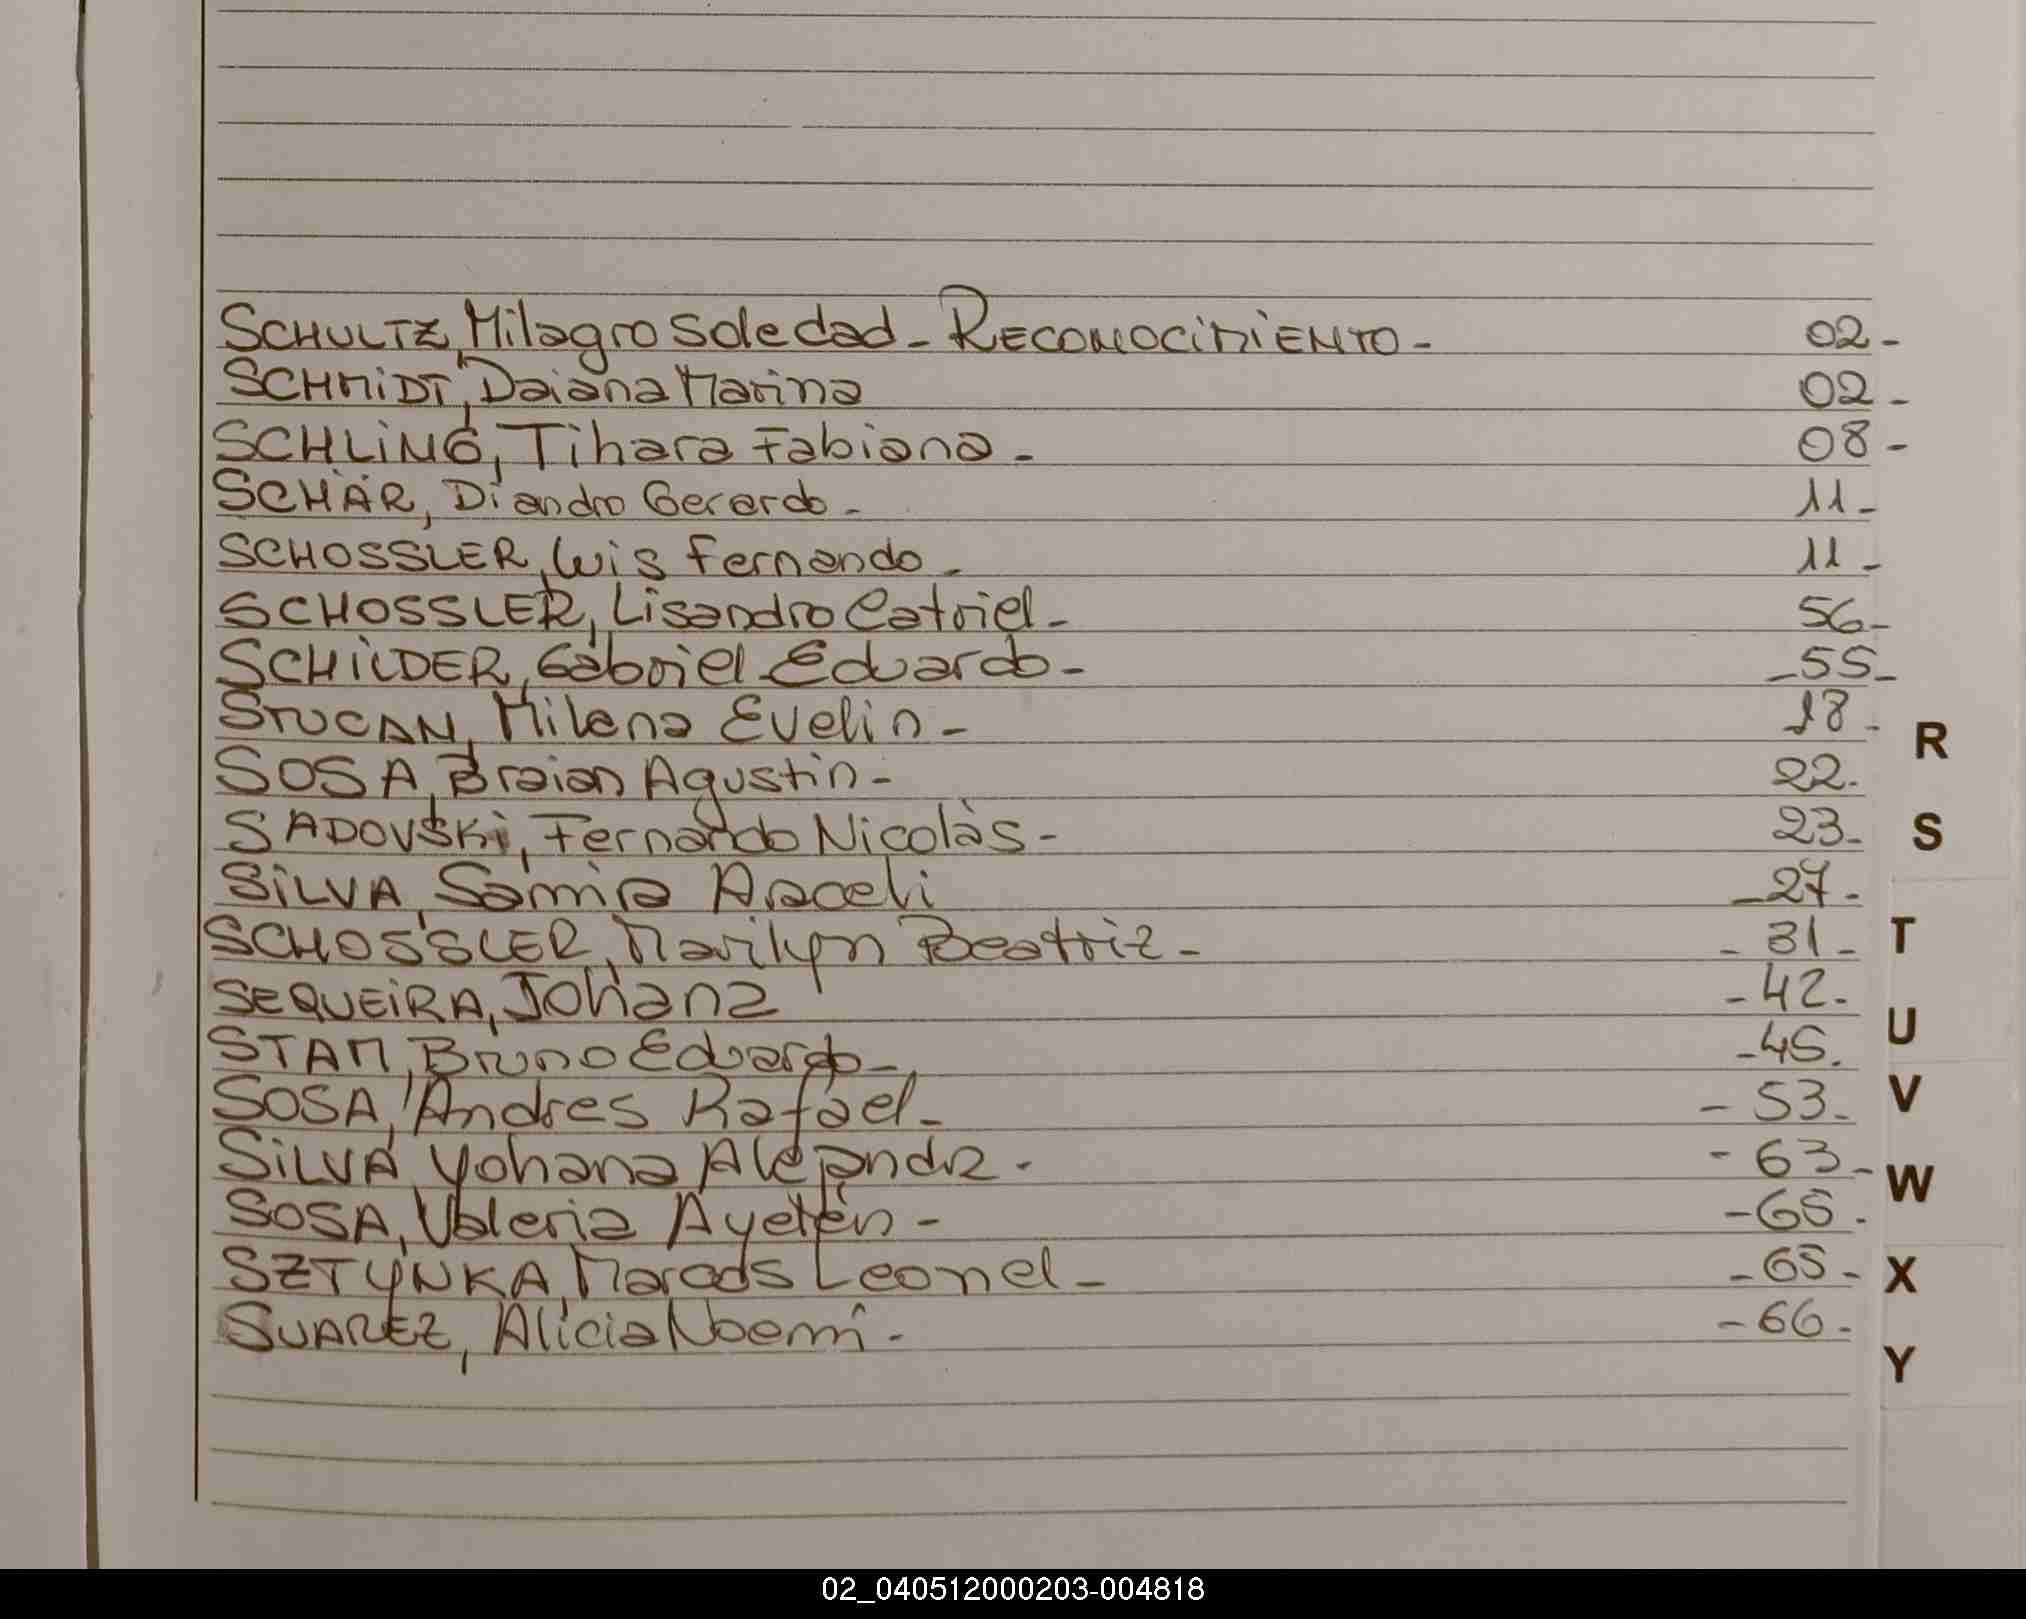 SCHULTZ, Milagro Soledad - RECONOCIMIENTO - 02 -
SCHMIDT, Daiana Marina 02 -
SCHLING, Tihara Fabiana - 08 -
SCHÄR, Diandro Gerardo - 11 -
SCHOSSLER, Luis Fernando - 11 -
SCHOSSLER, Lisandro Catriel - 56 -
SCHILDER, Gabriel Eduardo - - 55 -
STUCAN, Milena Evelin - 18 -
SOSA, Braian Agustin - 22 -
SADOVSKI, Fernando Nicolàs - 23 -
SILVA, Samira Araceli - 27 -
SCHOSSLER, Marilyn Beatriz - - 31 -
SEQUEIRA, Johana - 42 -
STAM, Bruno Eduardo - - 45 .
SOSA, Andres Rafael - - 53 -
SILVA, Yohana Alejandra - - 63 -
SOSA, Valeria Ayelén - - 65 -
SZTYNKA, Marcos Leonel - - 65 -
SUAREZ, Alicia Noemí - - 66 -
R
S
T
U
V
W
X
Y
02_040512000203-004818